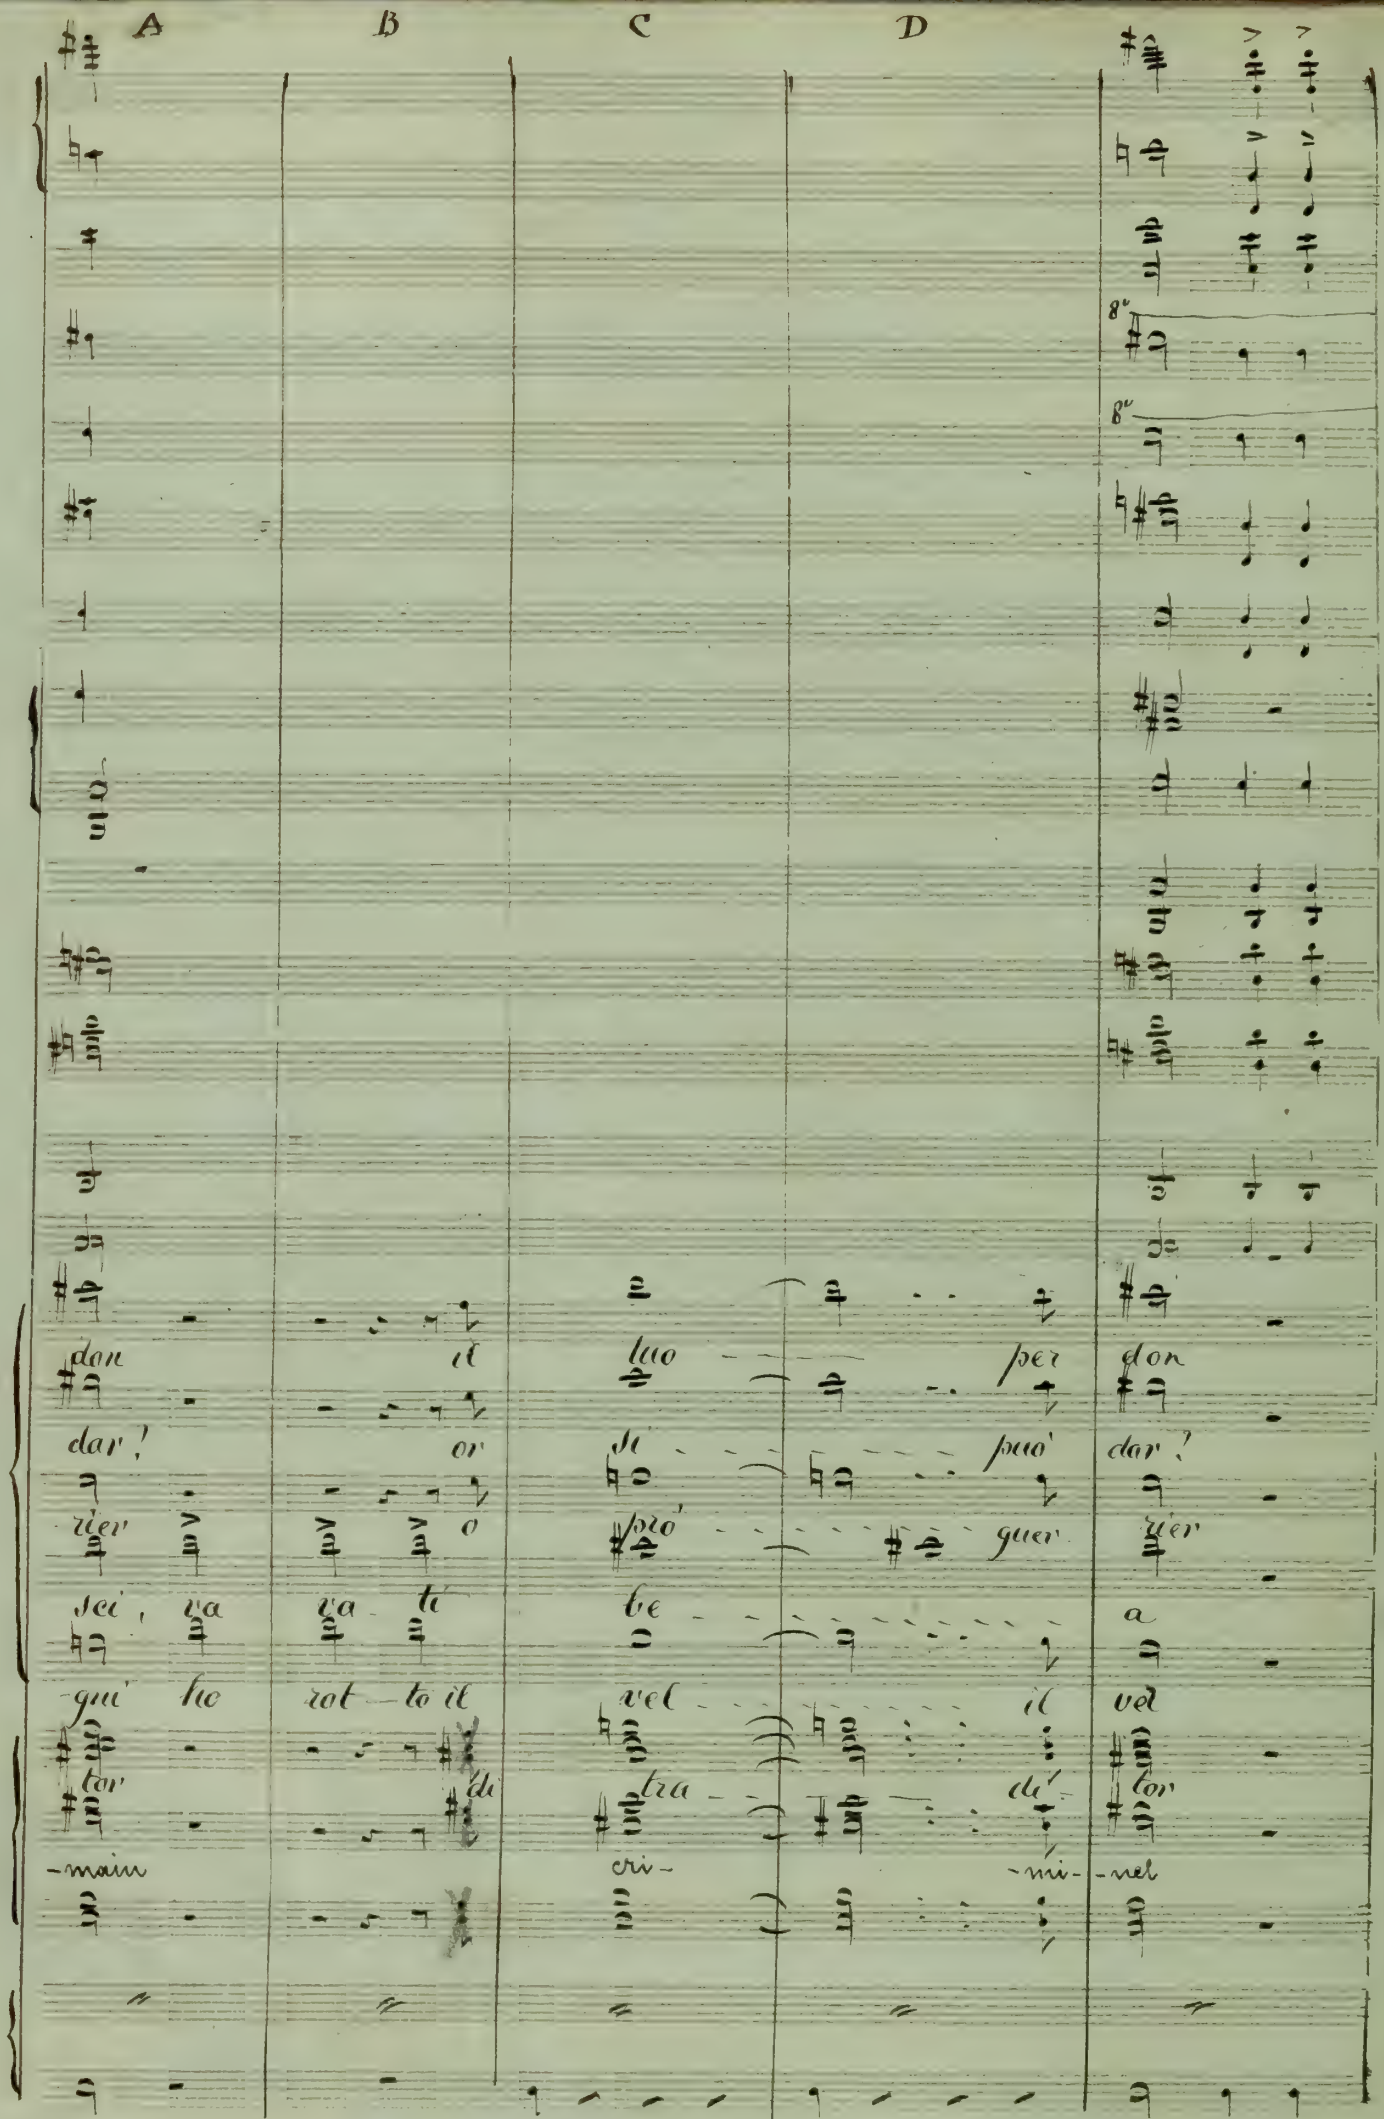 A B C D
8ª
8ª
don il tuo per don
dar? or si può dar?
rier o prò guer rier
sei, va va ti be a
-gui ho rot to il vel il vel
tor di tra di- tor
-main cri- -mi- -nel